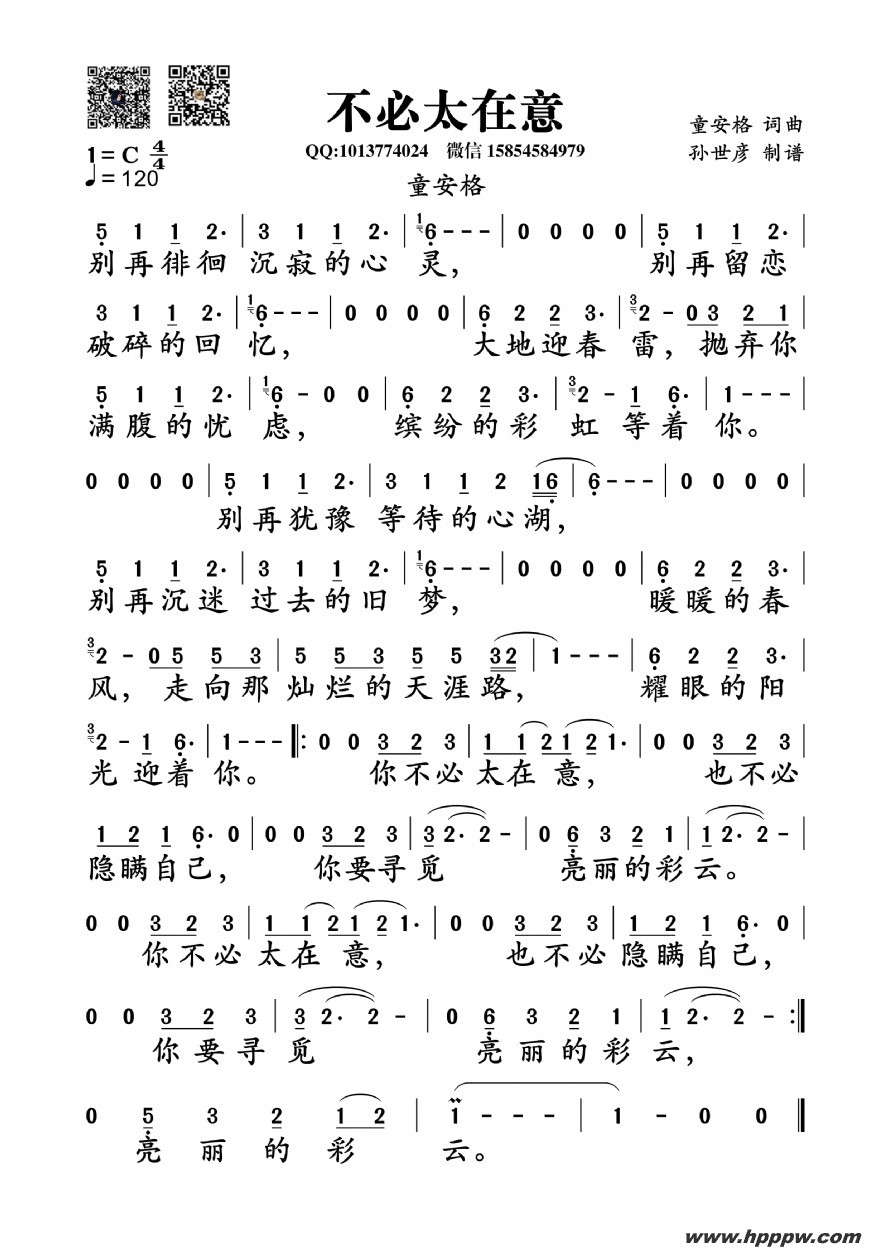 不必太在意
童安格 词曲
1=C 4/4
QQ:1013774024 微信 15854584979
孙世彦 制谱
♩=120
童安格
5 1 1 2· | 3 1 1 2· | 1 6 - - - | 0 0 0 0 | 5 1 1 2· |
别再徘徊 沉寂的心 灵， 别再留恋
3 1 1 2· | 1 6 - - - | 0 0 0 0 | 6 2 2 3· | 3 2 - 0 3 2 1 |
破碎的回 忆， 大地迎春 雷，抛弃你
5 1 1 2· | 1 6 - 0 0 | 6 2 2 3· | 3 2 - 1 6· | 1 - - - |
满腹的忧 虑， 缤纷的彩 虹 等着 你。
0 0 0 0 | 5 1 1 2· | 3 1 1 2 1 6 | 6 - - - | 0 0 0 0 |
别再犹豫 等待的心湖，
5 1 1 2· | 3 1 1 2· | 1 6 - - - | 0 0 0 0 | 6 2 2 3· |
别再沉迷 过去的旧 梦， 暖暖的春
3 2 - 0 5 5 3 | 5 5 3 5 5 3 2 | 1 - - - | 6 2 2 3· |
风，走向那 灿烂的天涯路， 耀眼的阳
3 2 - 1 6· | 1 - - - ‖: 0 0 3 2 3 | 1 1 2 1 2 1· | 0 0 3 2 3 |
光 迎着 你。 你不必 太在 意， 也不必
1 2 1 6· 0 | 0 0 3 2 3 | 3 2· 2 - | 0 6 3 2 1 | 1 2· 2 - |
隐瞒自己， 你要寻觅 亮丽的彩云。
0 0 3 2 3 | 1 1 2 1 2 1· | 0 0 3 2 3 | 1 2 1 6· 0 |
你不必 太在 意， 也不必 隐瞒自己，
0 0 3 2 3 | 3 2· 2 - | 0 6 3 2 1 | 1 2· 2 - :‖
你要寻觅 亮丽的彩云，
0 5 3 2 1 2 | 1 - - - | 1 - 0 0 ‖
亮丽的彩 云。
www.hpppw.com